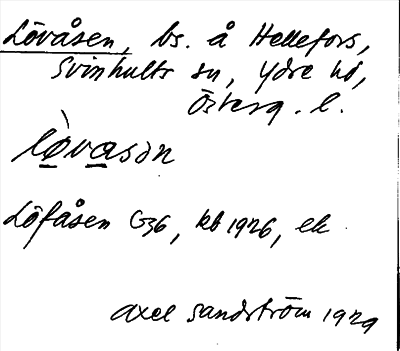 Lövåsen, bs. å Hellefors,
Svinhults sn, Ydre hd,
Österg. l.
lò̱va̱sɔn
Löfåsen G36, kb 1926, ek
Axel Sandström 1929